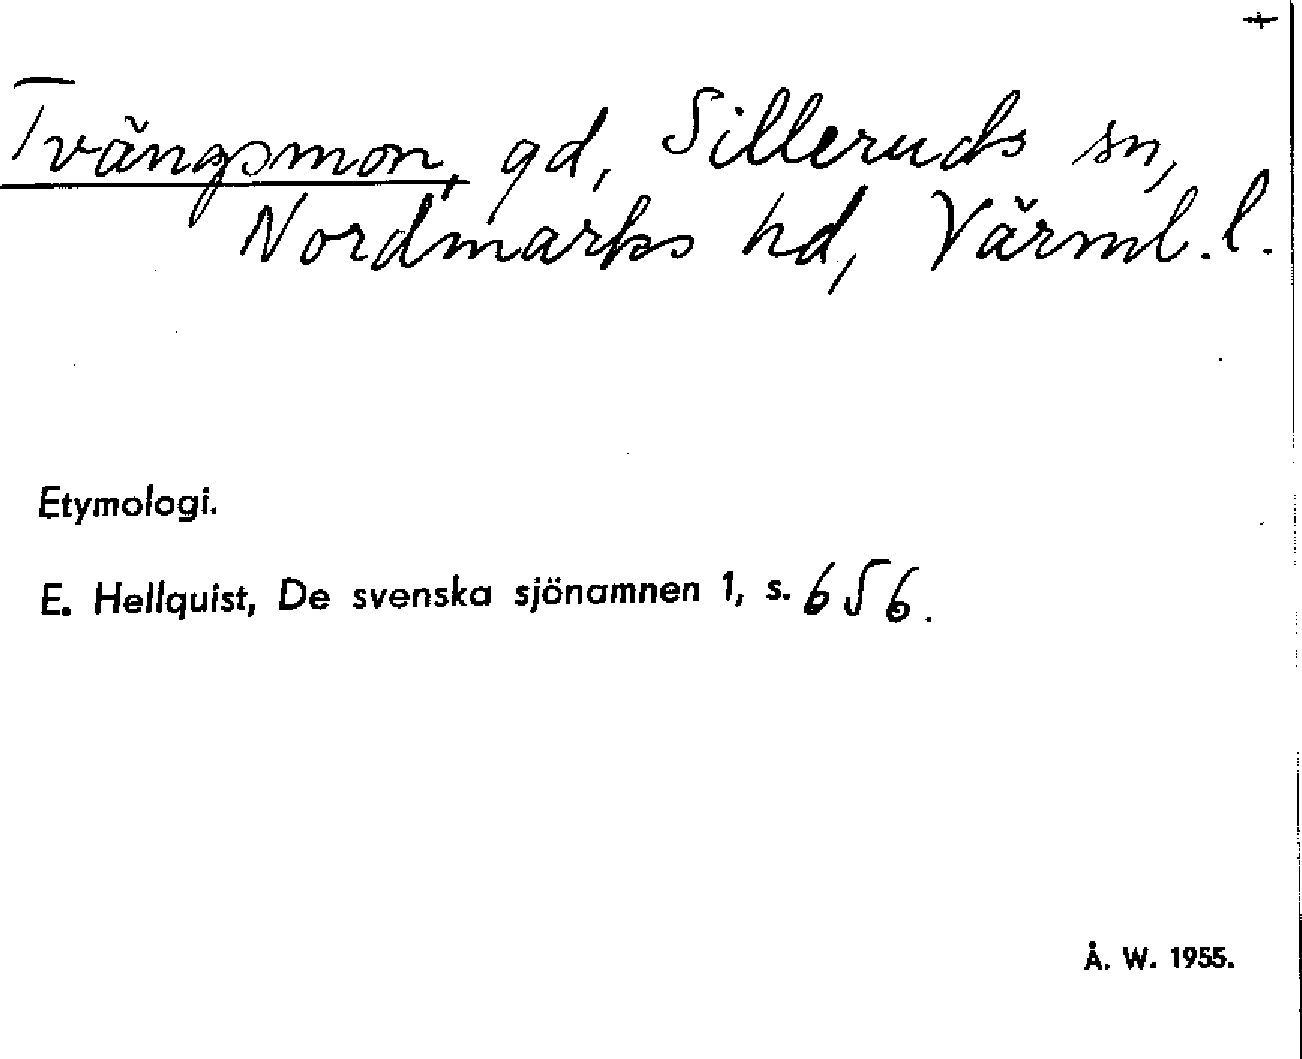 +
Tvängsmon, gd, Silleruds sn,
Nordmarks hd, Värml. l.
Etymologi.
E. Hellquist, De svenska sjönamnen 1, s. 656.
Å. W. 1955.